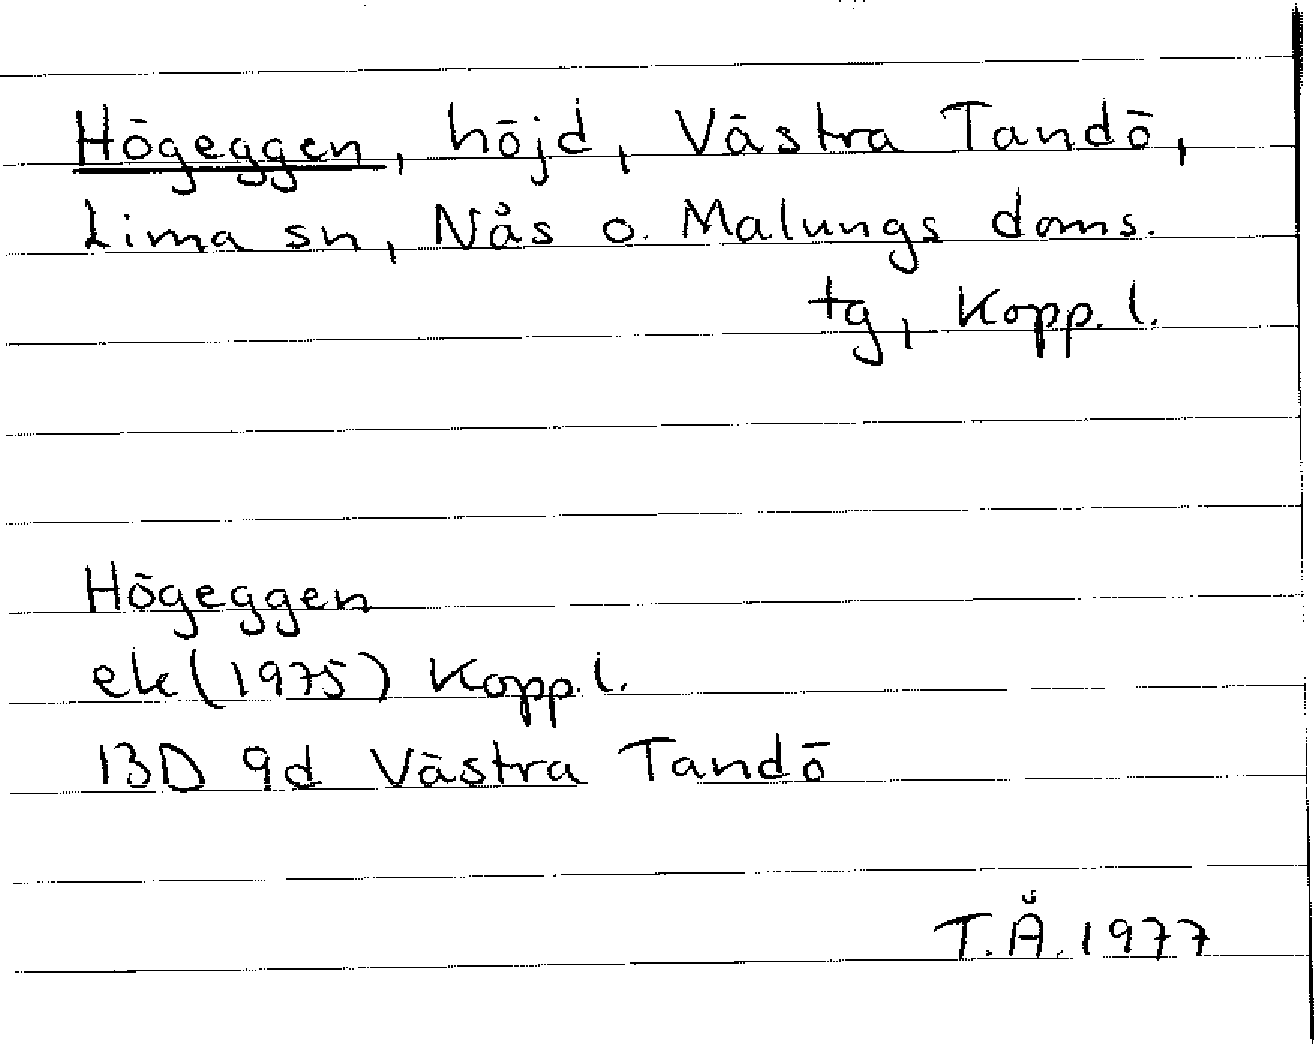 Högeggen, höjd, Västra Tandö,
Lima sn, Nås o. Malungs doms.
tg, Kopp. l.
Högeggen
ek (1975) Kopp. l.
13D 9d Västra Tandö
T.Å. 1977